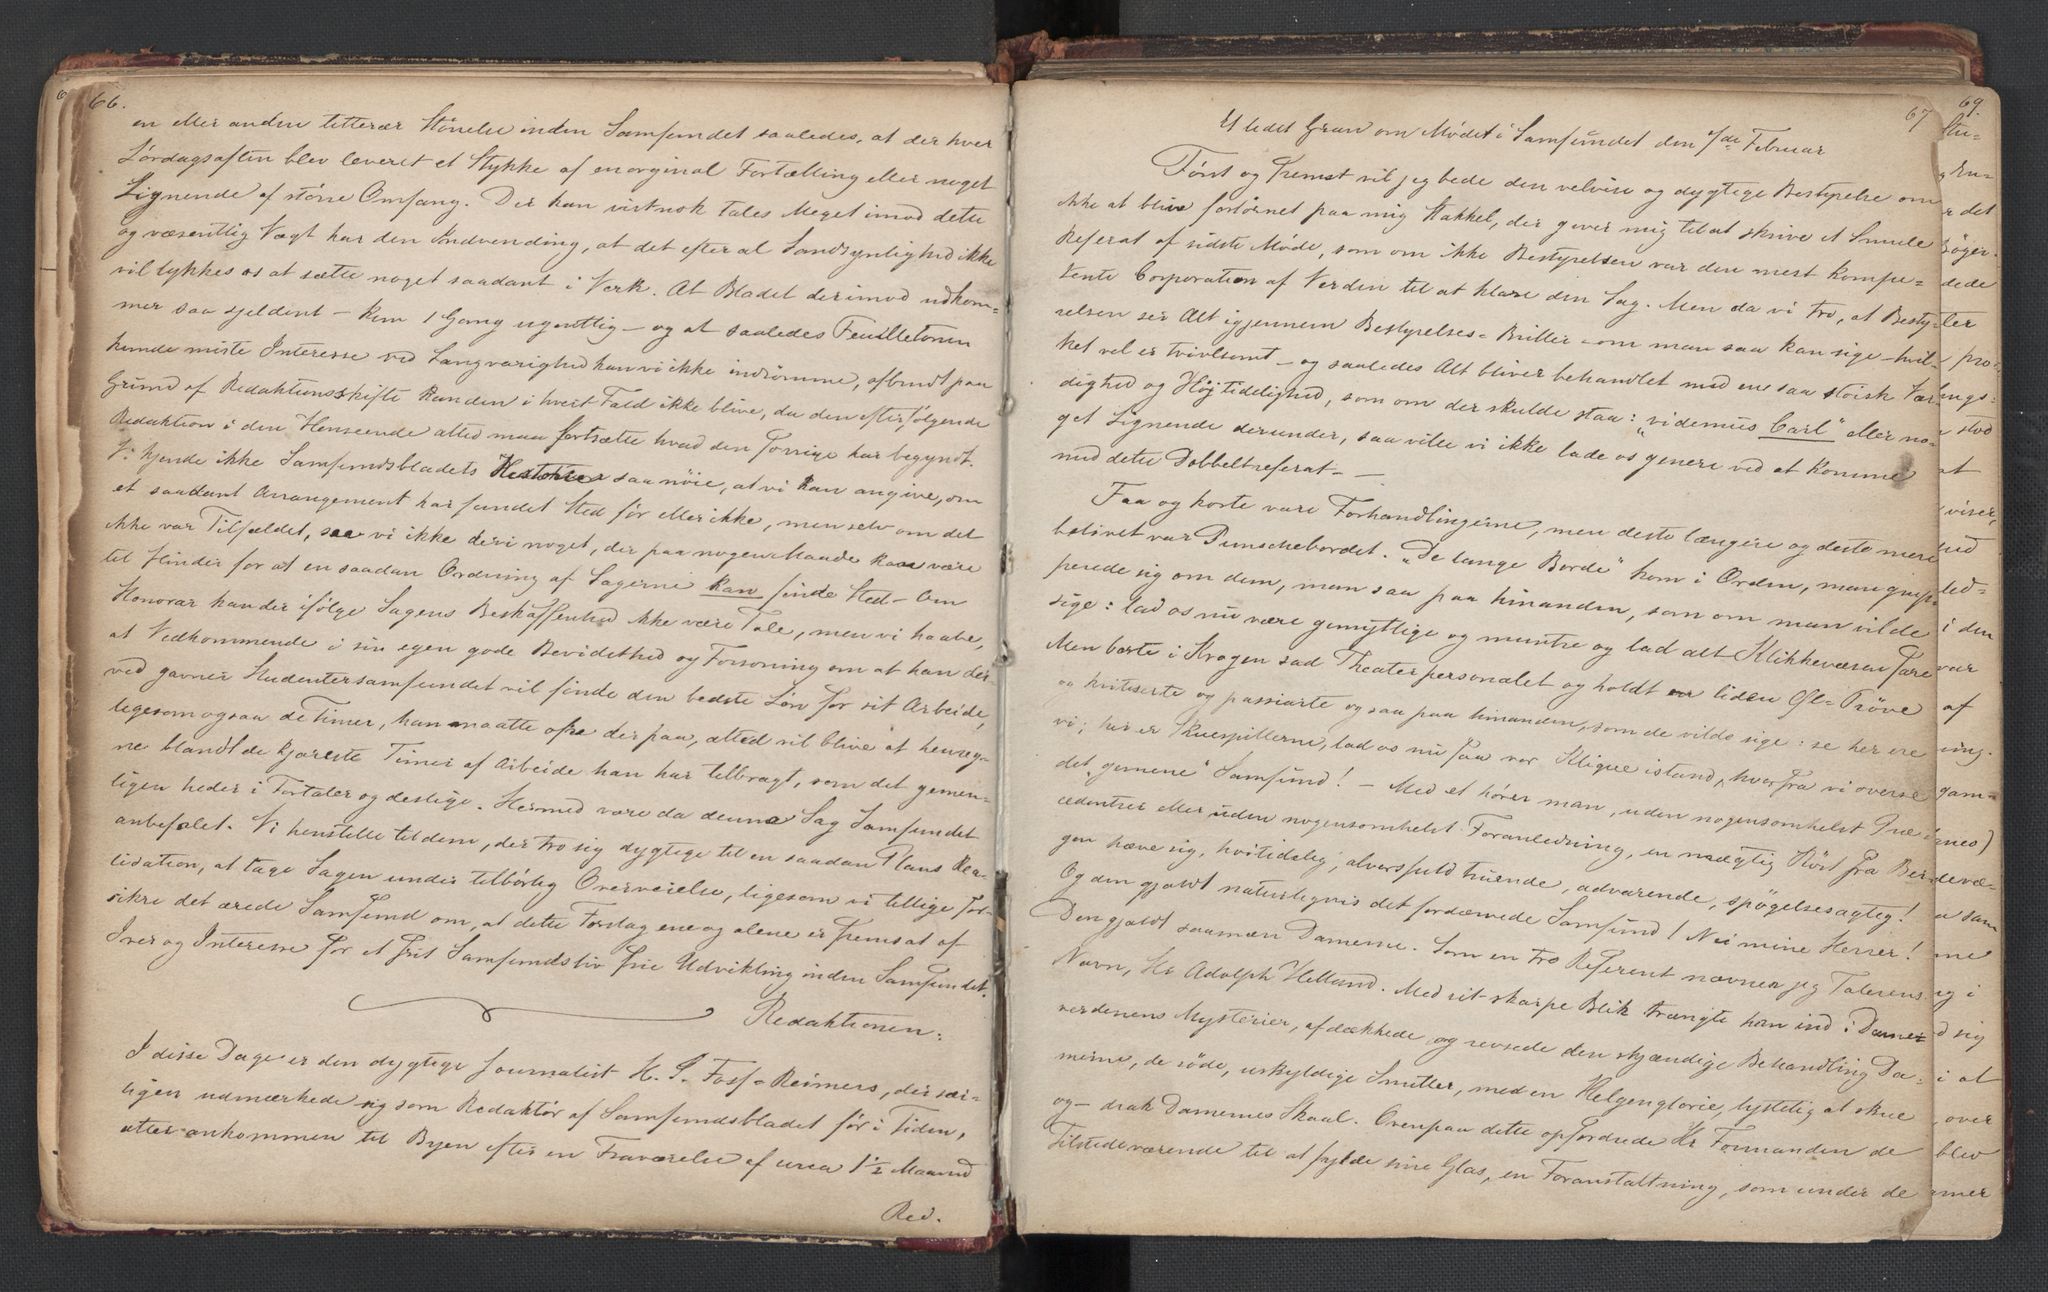 66.
en eller anden litterær Størrelse inden Samfundet saaledes, at der hver
Lørdagsaften blev leveret et Stykke af en orginal Fortælling eller noget
Lignende af større Omfang. Der kan vistnok tales Meget imod dette
og væsentlig Vægt har den Indvending, at det efter al Sandsynlighed ikke
vil lykkes os at sætte noget saadant i Verk. At Bladet derimod udkom-
mer saa sjeldent – kun 1 Gang ugentlig – og at saaledes Feuilletonen
kunde miste Interesse ved Langvarighed kan vi ikke indrømme, afbrudt paa
Grund af Redaktionsskifte kan den i hvert Fald ikke blive, da den efterfølgende
Redaktion i den Henseende altid maa fortsætte hvad den Forrige har begyndt.
Vi kjende ikke Samfundsbladets Historie saa nöie, at vi kan angive, om
et saadant Arrangement har fundet Sted før eller ikke, men selv om det
ikke var Tilfældet, saa vi ikke deri noget, der paa nogen Maade kan være
til Hinder for at en saadan Ordning af Sagerne kan finde Sted – Om
Honorar kan der ifølge Sagens Beskaffenhed ikke være Tale, men vi haabe,
at Vedkommende i sin egen gode Bevidsthed og Forsoning om at han der-
ved gavner Studentersamfundet vil finde den bedste Løn for sit Arbeide,
ligesom ogsaa de Timer, han maatte ofre der paa, altid vil blive at henreg-
ne blandt de kjæreste Timer af Arbeide han har tilbragt, som det gemen-
ligen heder i Fortaler og deslige. Hermed være da denne Sag Samfundet
anbefalet. Vi henstille til dem, der tro sig dygtige til en saadan Plans Rea-
lisation, at tage Sagen under tilbørlig Overveielse, ligesom vi tillige for-
sikre det ærede Samfund om, at dette Forslag ene og alene er fremsat af
Iver og Interesse for et frit Samfundsliv frie Udvikling inden Samfundet.
Redaktionen.
I disse Dage er den dygtige Journalist H. P. Foss-Reimers, der sær-
ligen udmærkede sig som Redaktør af Samfundsbladet før i Tiden,
atter ankommen til Byen efter en Fraværelse af circa 1½ Maaned
Red.
67
Et lidet Gran om Mødet i Samfundet den 1ste Februar
Først og Fremst vil jeg bede den velvise og dygtige Bestyrelse om
ikke at blive fortørnet paa mig Stakkel, der giver mig til at skrive et Smule
Referat af sidste Møde, som om ikke Bestyrelsen var den mest kompe-
tente Corporation af Verden til at klare den Sag. Men da vi tro, at Besty-
relsen ser Alt igjennem Bestyrelses-Briller – om man saa kan sige – hvil-
ket vel er tvivlsomt – og saaledes Alt bliver behandlet med en saa stoisk Vær-
dighed og Højtidelighed, som om der skulde staa: "videmus Carl" eller no-
get Lignende derunder, saa ville vi ikke lade os genere ved at komme
med dette Dobbeltreferat – –
Faa og korte vare Forhandlingerne, men desto længere og desto mere
belivet var Punschebordet. "De lange Borde" kom i Orden, man grup-
perede sig om dem, man saa paa hinanden, som om man vilde
sige: lad os nu være gemytlige og muntre og lad alt Klikkevæsen fare
Men borte i Krogen sad Theaterpersonalet og holdt en liden Gl-Prøve
og kritiserte og passiarte og saa paa hinanden, som de vilde sige: se her ere
vi; her er Skuespillerne, lad os nu faa vor Klique istand, hvorfra vi overse
det "gemene" Samfund! – Med et hører man, uden nogensomhelst Præ-
cedentser eller uden nogensomhelst Foranledning, en mægtig Röst fra Bær-
gen hæve sig, høitidelig, alvorsfuld truende, advarende, spøgelsesagtig!
Og den gjaldt naturligvis det fordærvede Samfund! Nei mine Herrer!
Den gjaldt saamæn Damerne. Som en tro Referent nævner jeg Talerens
Navn, Hr Adolph Helland. Med sit skarpe Blik trængte han ind i Dame-
verdenens Mysterier, afdækkede og revsede den skjændige Behandling Da-
merne, de søde, uskyldige Smitter, med en Helgenglorie, lystelig at skue
og – drak Damernes Skaal. Ovenpaa dette opfordrede Hr Formanden de
Tilstedeværende til at fylde sine Glas, en Foranstaltning, som under de
69.